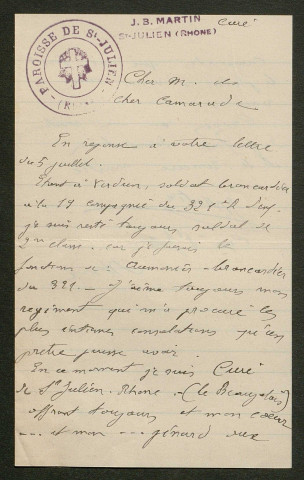 PAROISSE DE St-JULIEN
(RHONE)
J. B. MARTIN Curé
St-JULIEN (RHONE)
Cher M. et
cher Camarade
En reponse à votre lettre
du 5 juillet.
Etant à Verdun, soldat brancardier
à la 19 compagnie du 321
je suis resté toujours soldat de
2me classe. car je faisais les
fonctions d' aumonier-brancardier
du 321 - J'aime toujours mon
regiment qui m'a procuré les
plus intimes consolations qu'un
pretre puisse avoir.
En ce moment je suis Curé
de St Julien. Rhone. (le Beaujolais)
offrant toujours et mon cœur
... et mon ... aux